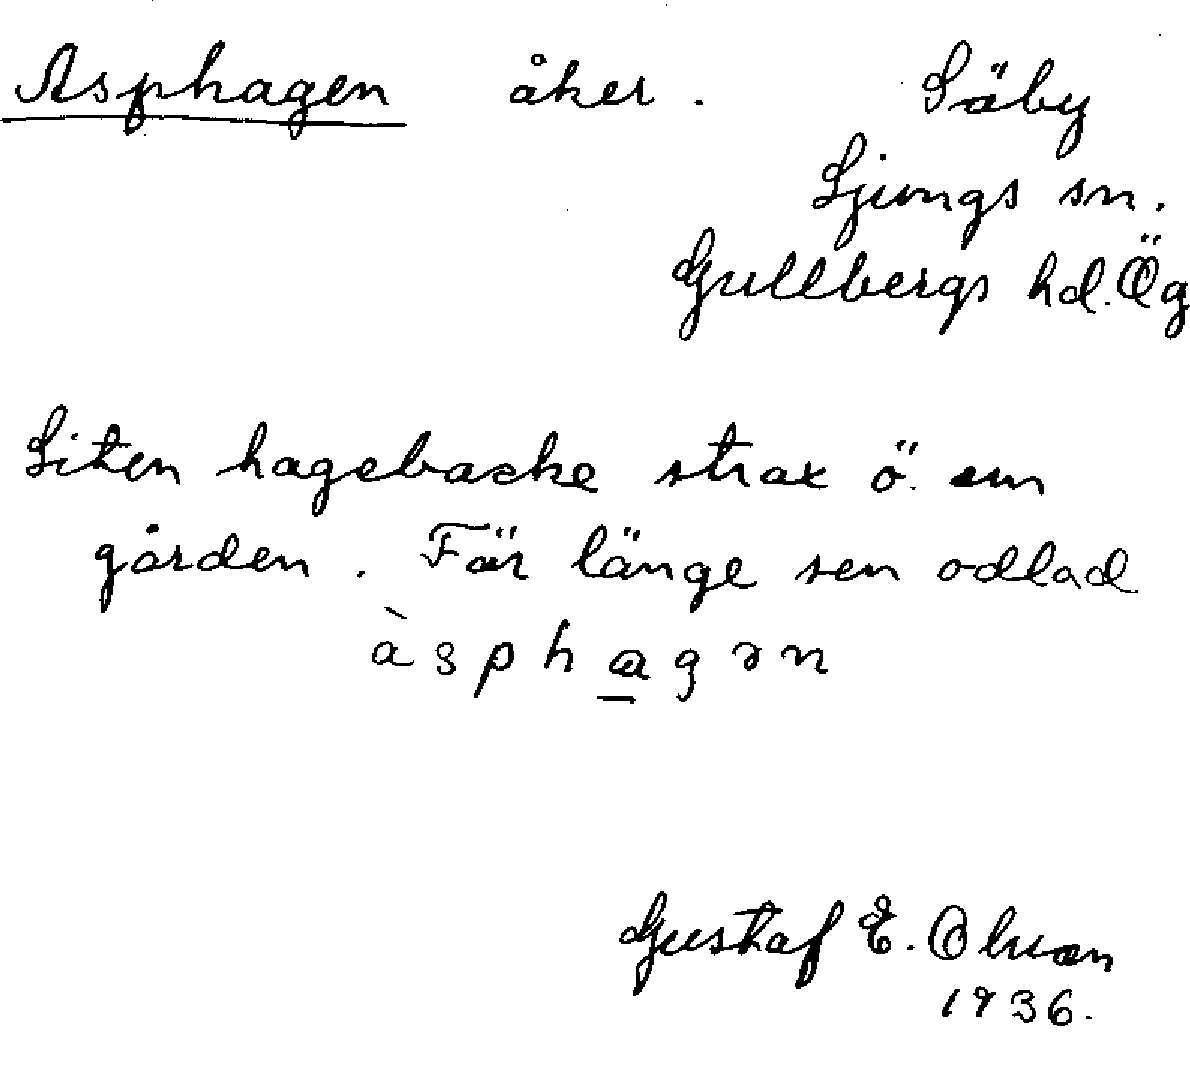 Asphagen åker. Säby
Ljungs sn.
Gullbergs hd. Ög
Liten hagebacke strax ö. om
gården. För länge sen odlad
àsphagən
Gustaf E. Olsson
1936.